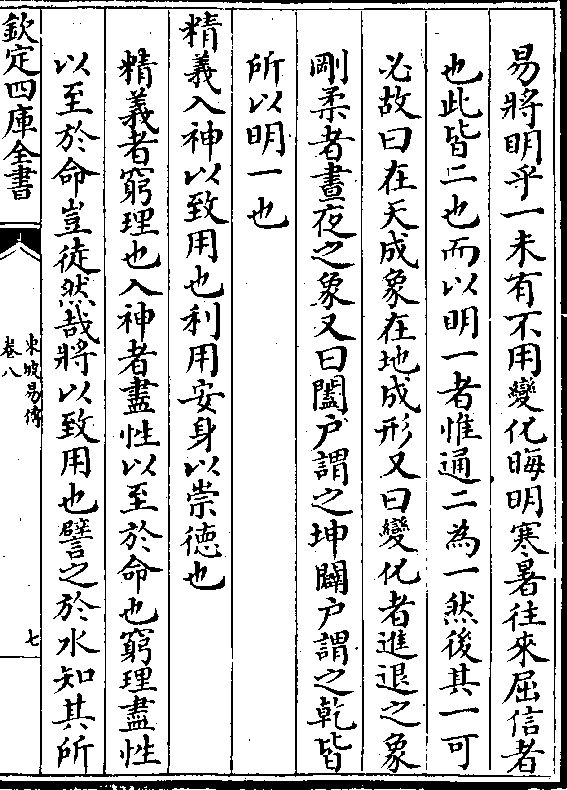 易將明乎一未有不用變化晦明寒暑往來屈信者
也此皆二也而以明一者惟通二為一然後其一可
必故曰在天成象在地成形又曰變化者進退之象
剛柔者晝夜之象又曰闔户謂之坤闢户謂之乾皆
所以明一也
精義入神以致用也利用安身以崇徳也
精義者窮理也入神者盡性以至於命也窮理盡性
以至於命豈徒然哉將以致用也譬之於水知其所
欽定四庫全書
東坡易傳
卷八
七